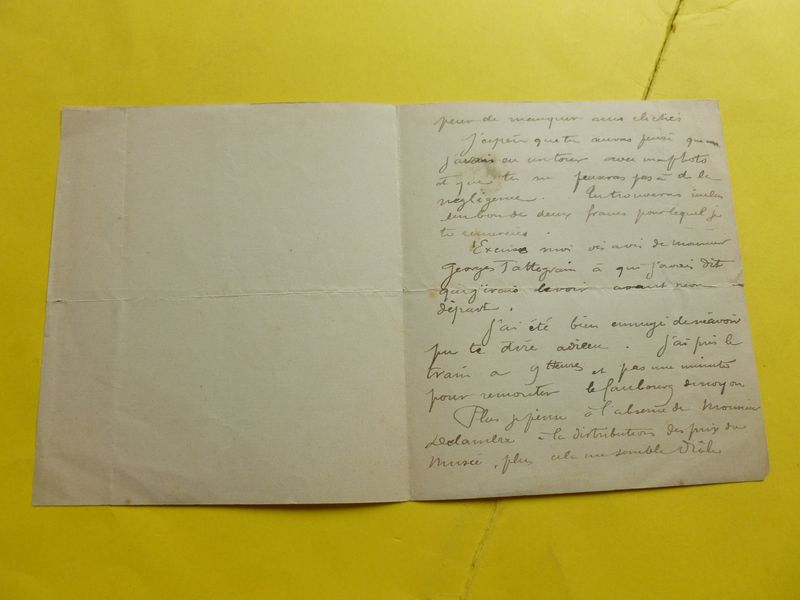 peur de manquer mes clichés
J'espère que tu auras pensé que
j'avais eu un tour avec ma photo
et que tu ne penseras pas à de la
négligence. Tu trouveras inclus
un bon de deux francs pour lequel je
te remercie.
Excuse moi vis à vis de monsieur
Georges Tattegrain à qui j'avais dit
que j'irais le voir avant mon
départ.
J'ai été bien ennuyé de n'avoir
pu te dire adieu. J'ai pris le
train à 9 heures et pas une minute
pour remonter le faubourg de noyon
Plus je pense à l'absence de Monsieur
Delambre à la distribution des prix du
Musée, plus cela me semble drôle